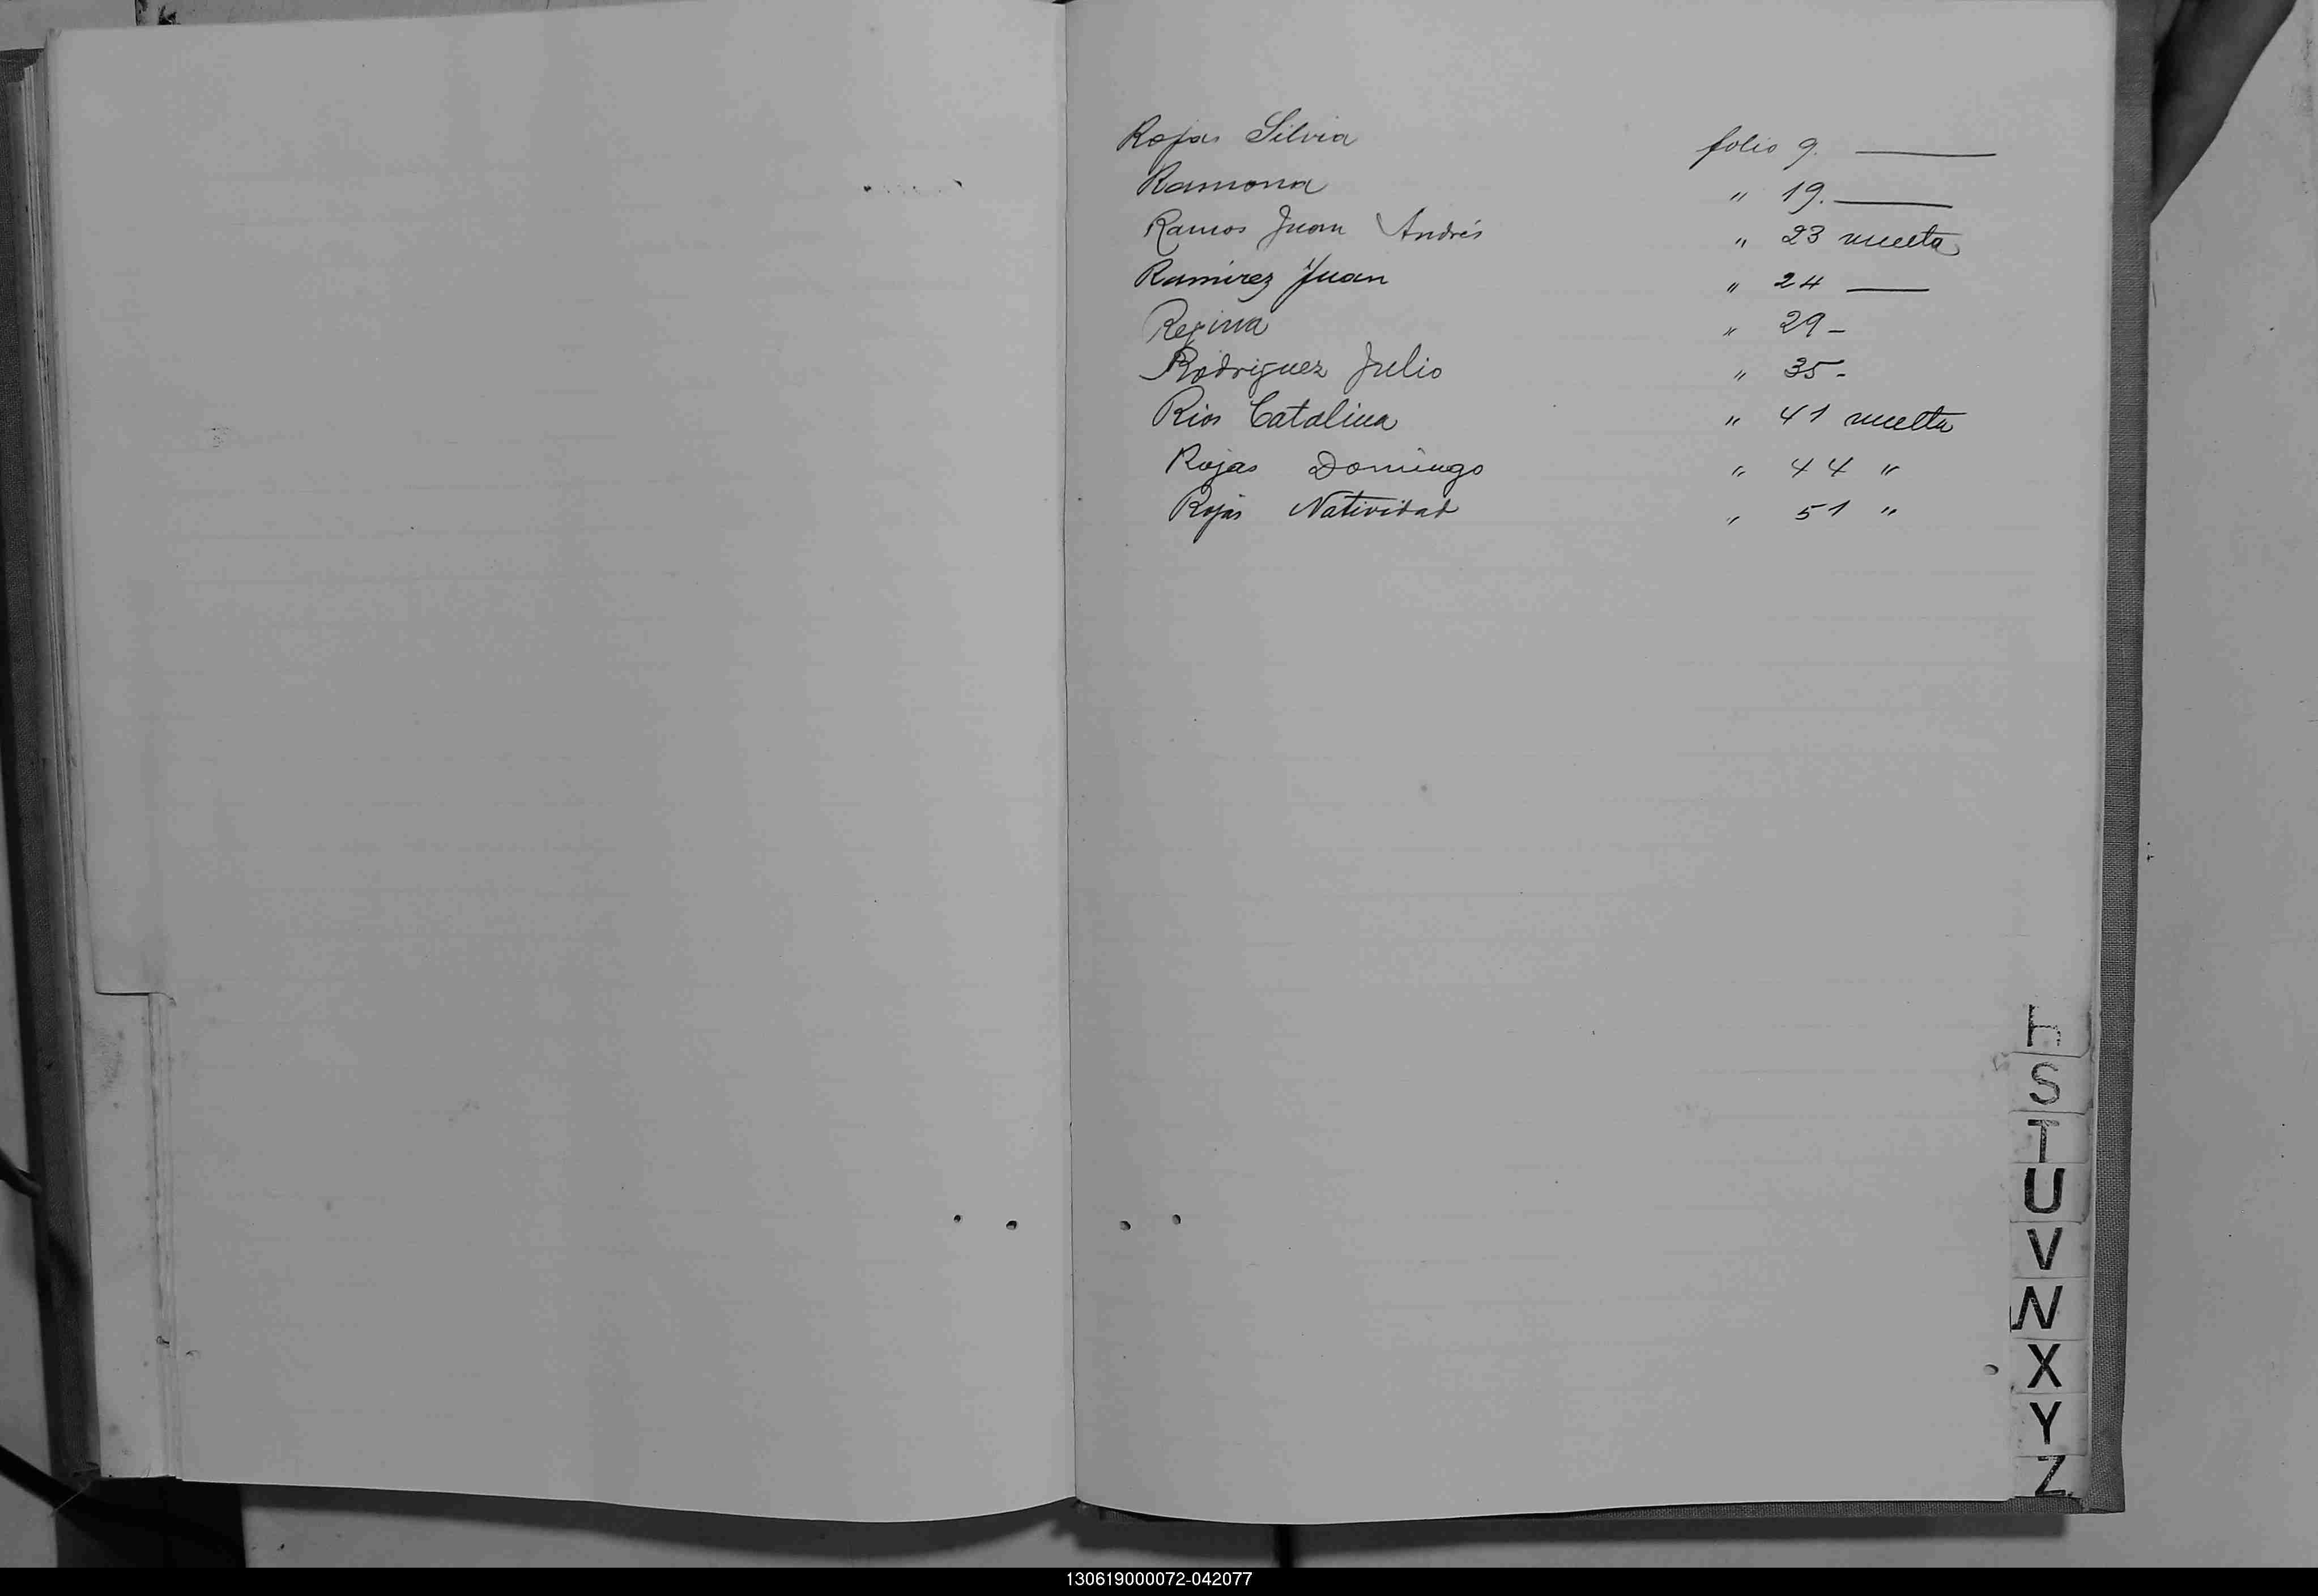 Rojas Silvia folio 9. ———
Ramona " 19. ———
Ramos Juan Andrés " 23 vuelta
Ramirez Juan " 24 ———
Regina " 29 -
Rodriguez Julio " 35 -
Rios Catalina " 41 vuelta
Rojas Domingo " 44 "
Rojas Natividad " 51 "
S
T
U
V
X
Y
Z
130619000072-042077